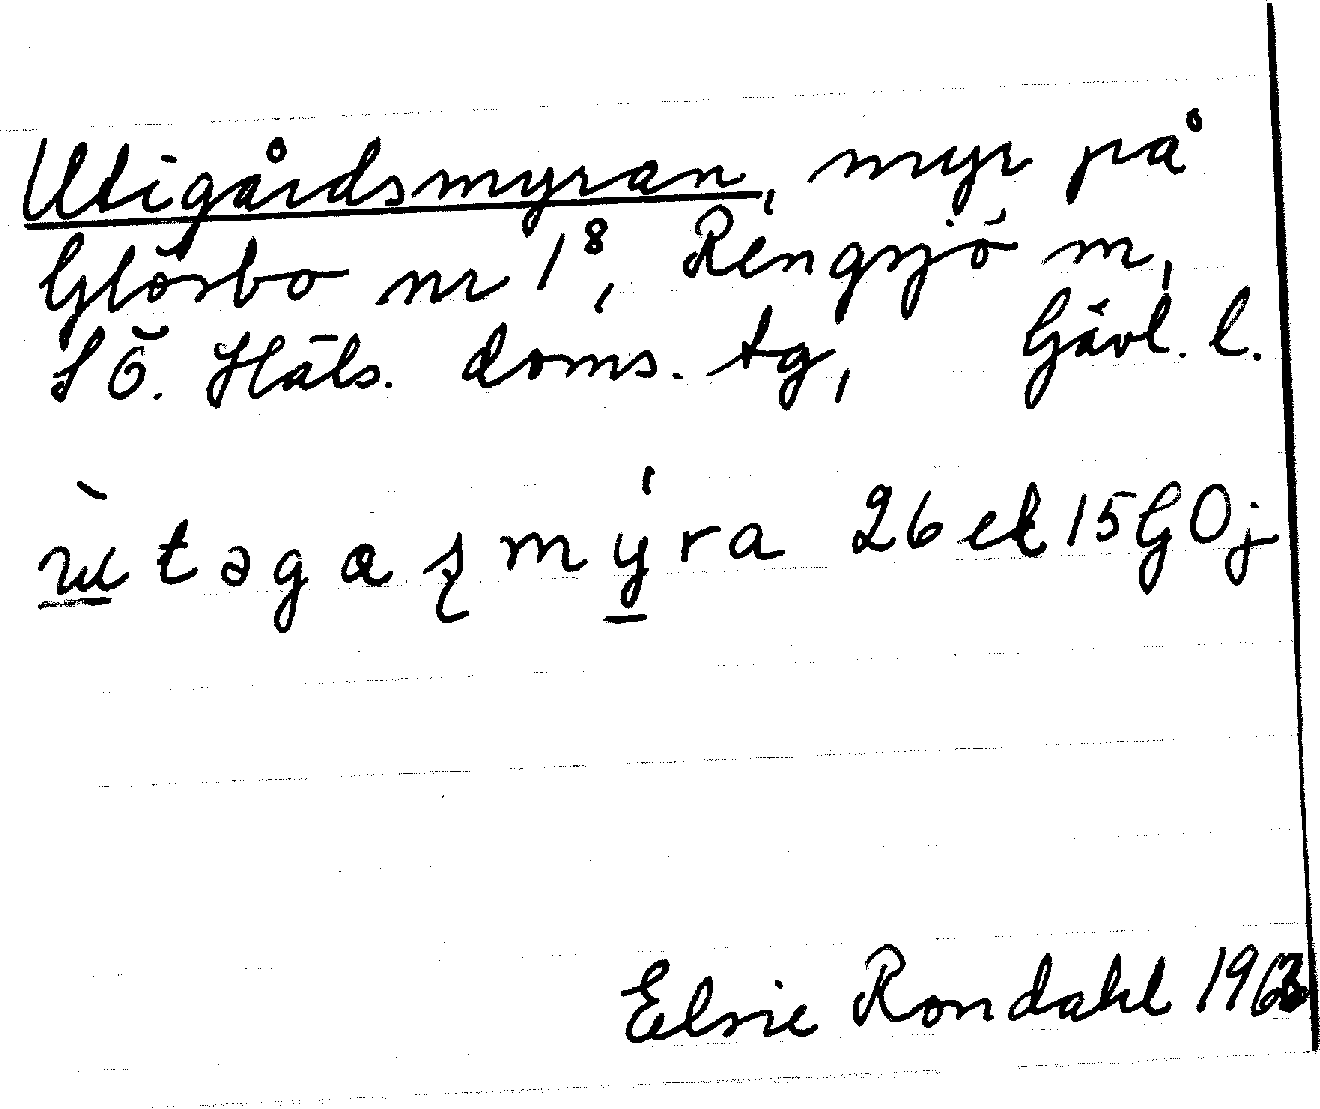 Utigårdsmyran, myr på
Glösbo nr 1⁸, Rengsjö m,
SÖ. Häls. doms. tg, Gävl. l.
ùtəgaʂmýra 26 ek 15 G Oj
Elsie Rondahl 1963